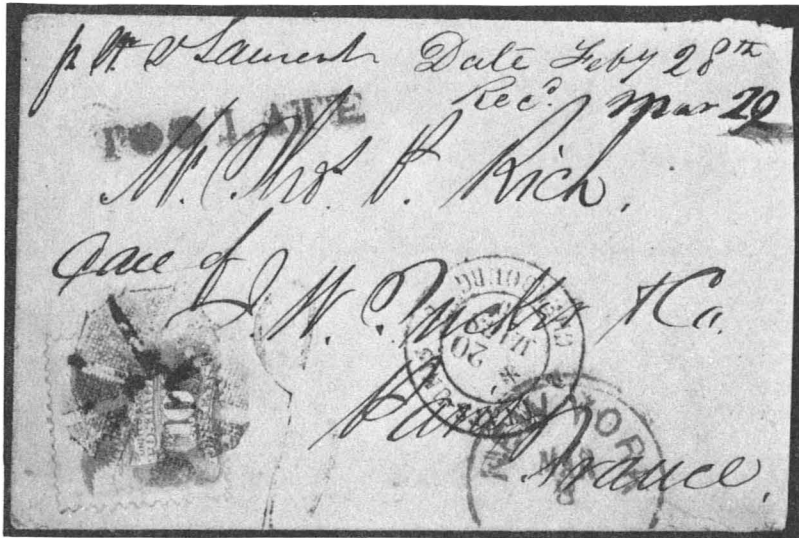 p St Laurent Date Feby 28th
Recd. Mar 20
TOO LATE
Mr. Thos. P. Rich,
Care of
J. W. Tucker & Co.
Paris
France.
CHERBOURG
20
MARS
NEW YORK
MAR
10